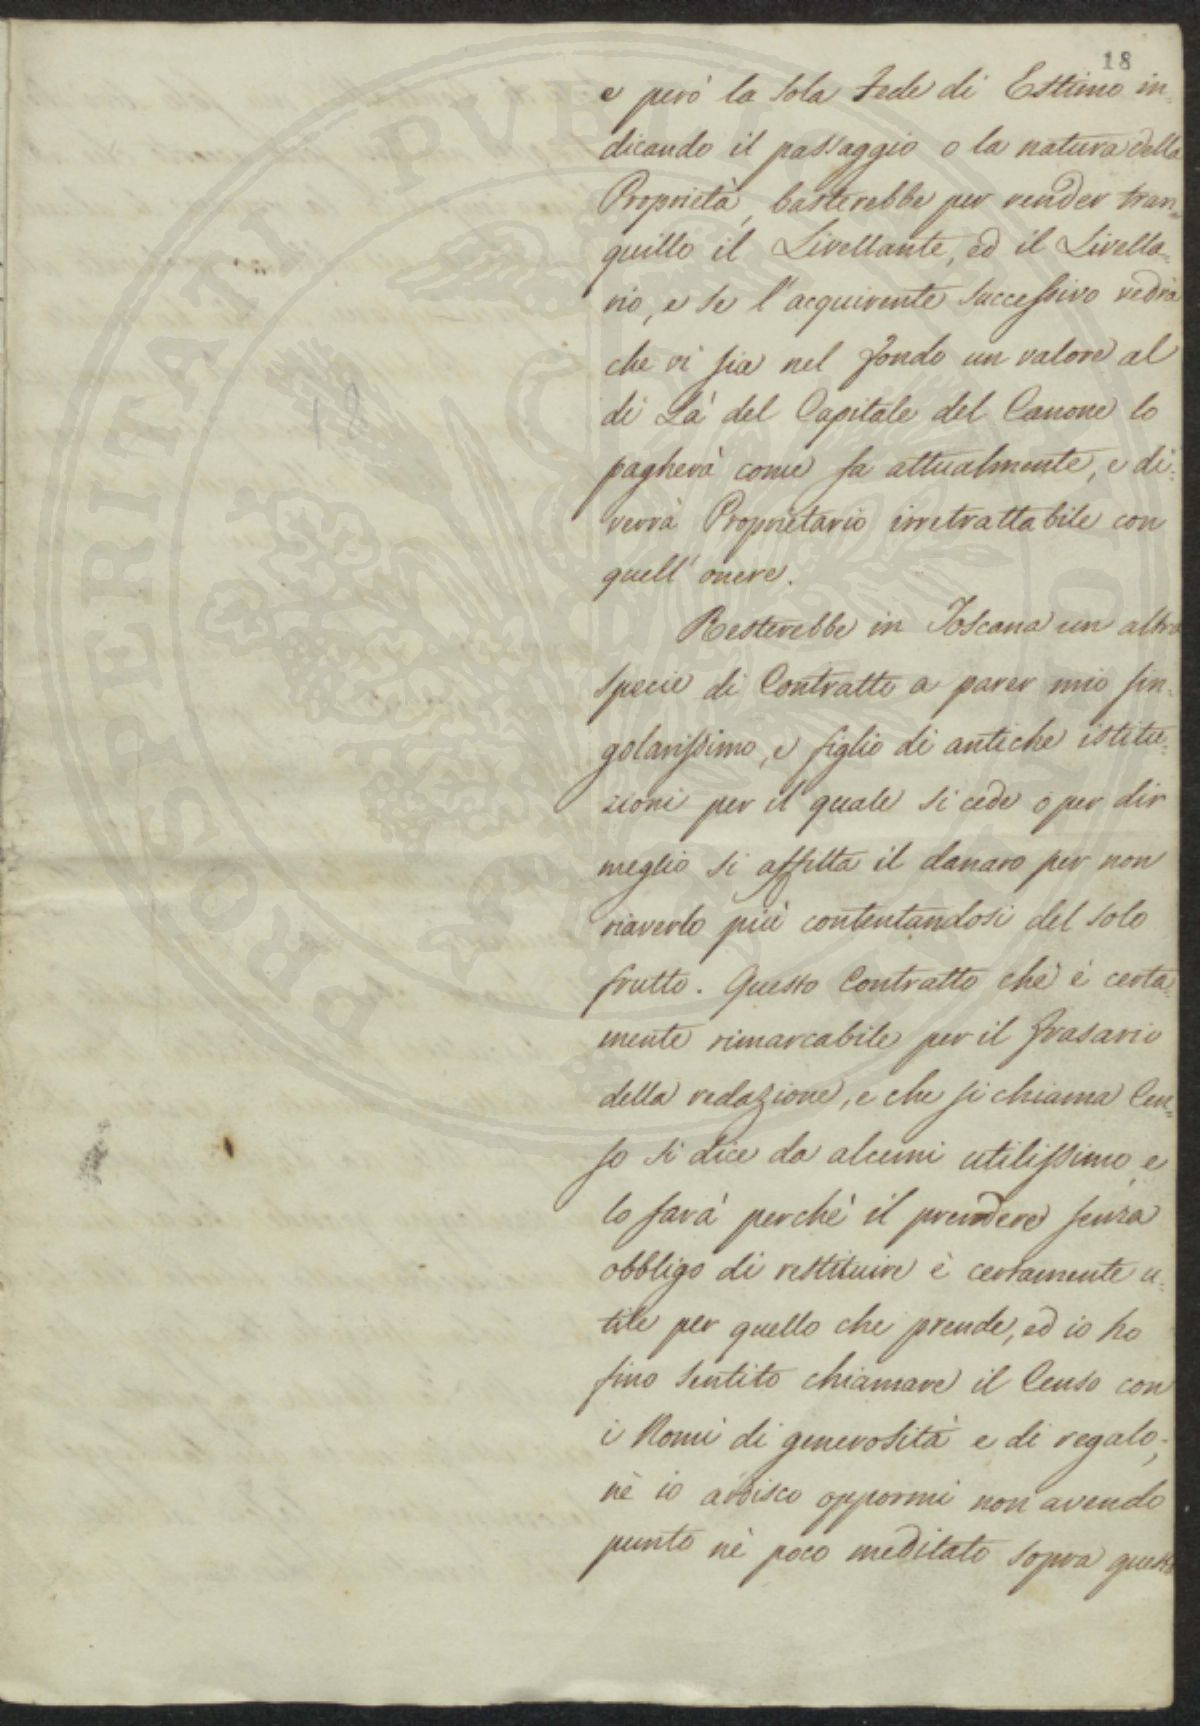 18
e però la sola Fede di Estimo in=
dicando il passaggio o la natura della
Proprietà, basterebbe per render tran=
quillo il Livellante, ed il Livella=
rio, e se l'acquirente successivo vedrà
che vi sia nel fondo un valore al
di Là del Capitale del Canone lo
pagherà come fa attualmente, e di=
verrà Proprietario irretrattabile con
quell'onere.
Resterebbe in Toscana un altra
specie di Contratto a parer mio sin=
golarissimo, e figlio di antiche istitu=
zioni per il quale si cede o per dir
meglio si affitta il danaro per non
riaverlo più contentandosi del solo
frutto. Questo Contratto che è certa=
mente rimarcabile per il frasario
della redazione, e che si chiama Cen=
so si dice da alcuni utilissimo, e
lo sarà perchè il prendere senza
obbligo di restituire è certamente u=
tile per quello che prende, ed io ho
sino sentito chiamare il Censo con
i Nomi di generosità e di regalo;
nè io ardisco oppormi non avendo
punto nè poco meditato sopra questo
18
PROSPERITATI PVBLICAE